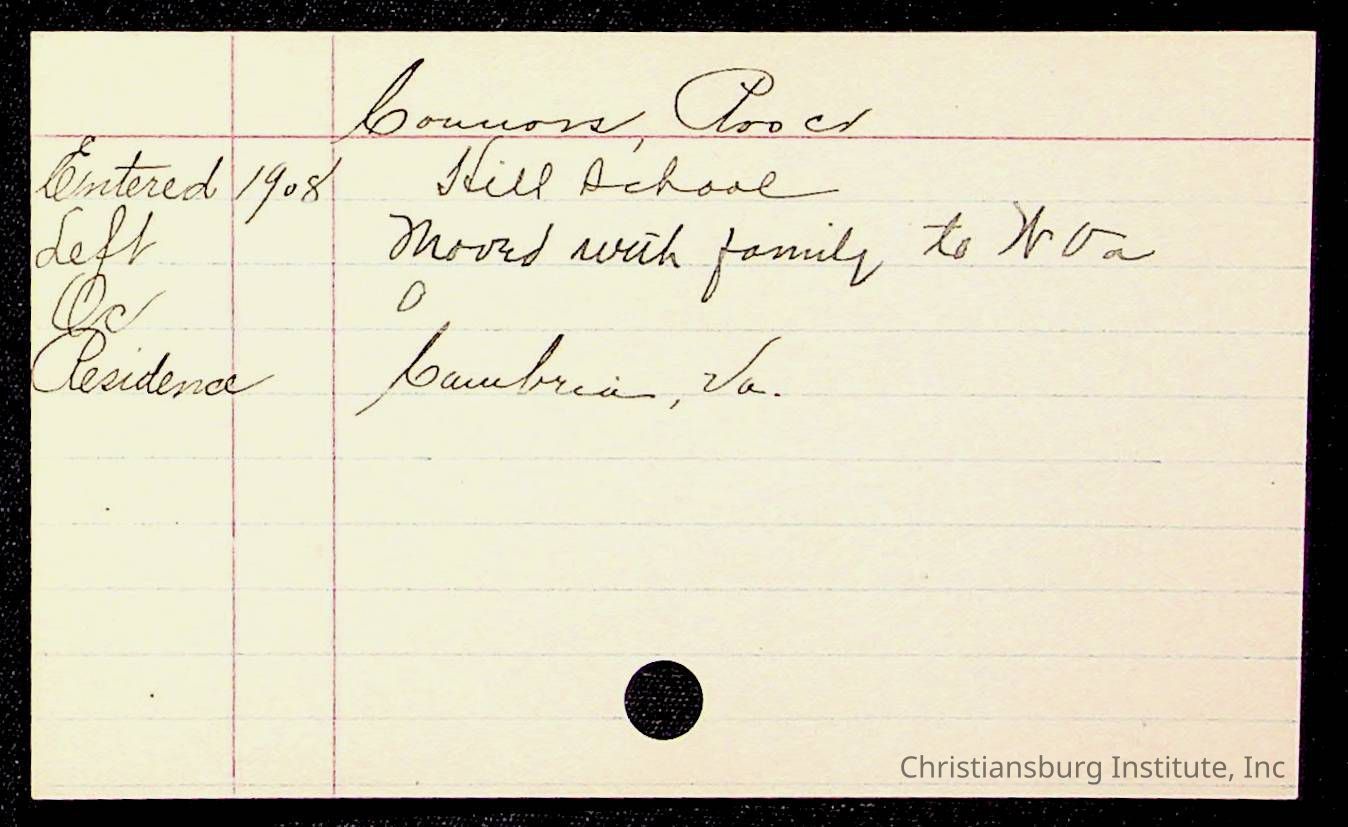 Connors, Roscr
Entered 1908 Hill School
Left Moved with family to W Va
Oc O
Residence Cambria, Va.
Christiansburg Institute, Inc